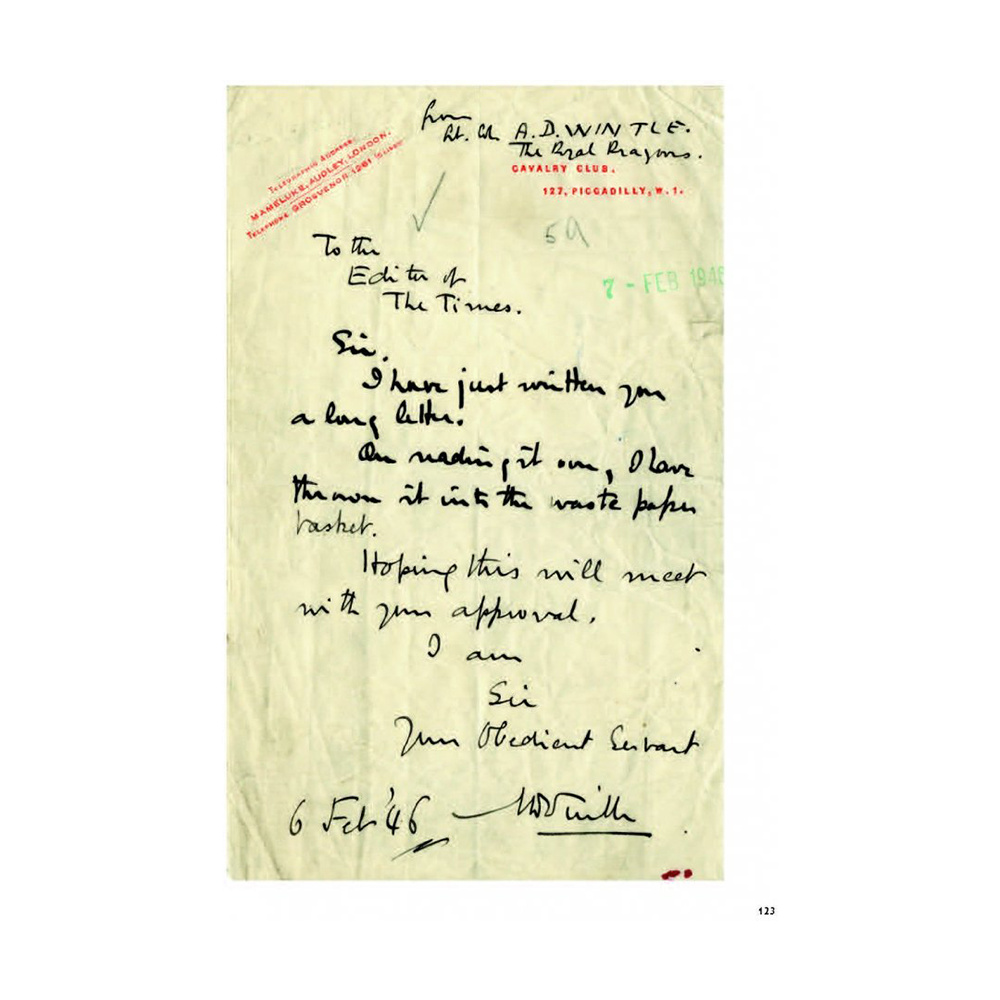 from
Lt. Col. A.D. WINTLE.
The Royal Dragoons.
CAVALRY CLUB.
127, PICCADILLY, W.1.
TELEGRAPHIC ADDRESS:
MAMELUKE, AUDLEY, LONDON.
TELEPHONE GROSVENOR 1261
59
7 - FEB 1946
To the
Editor of
The Times.
Sir,
I have just written you
a long letter.
On reading it over, I have
thrown it into the waste paper
basket.
Hoping this will meet
with your approval,
I am
Sir
Your Obedient Servant
6 Feb '46
ADWintle
123